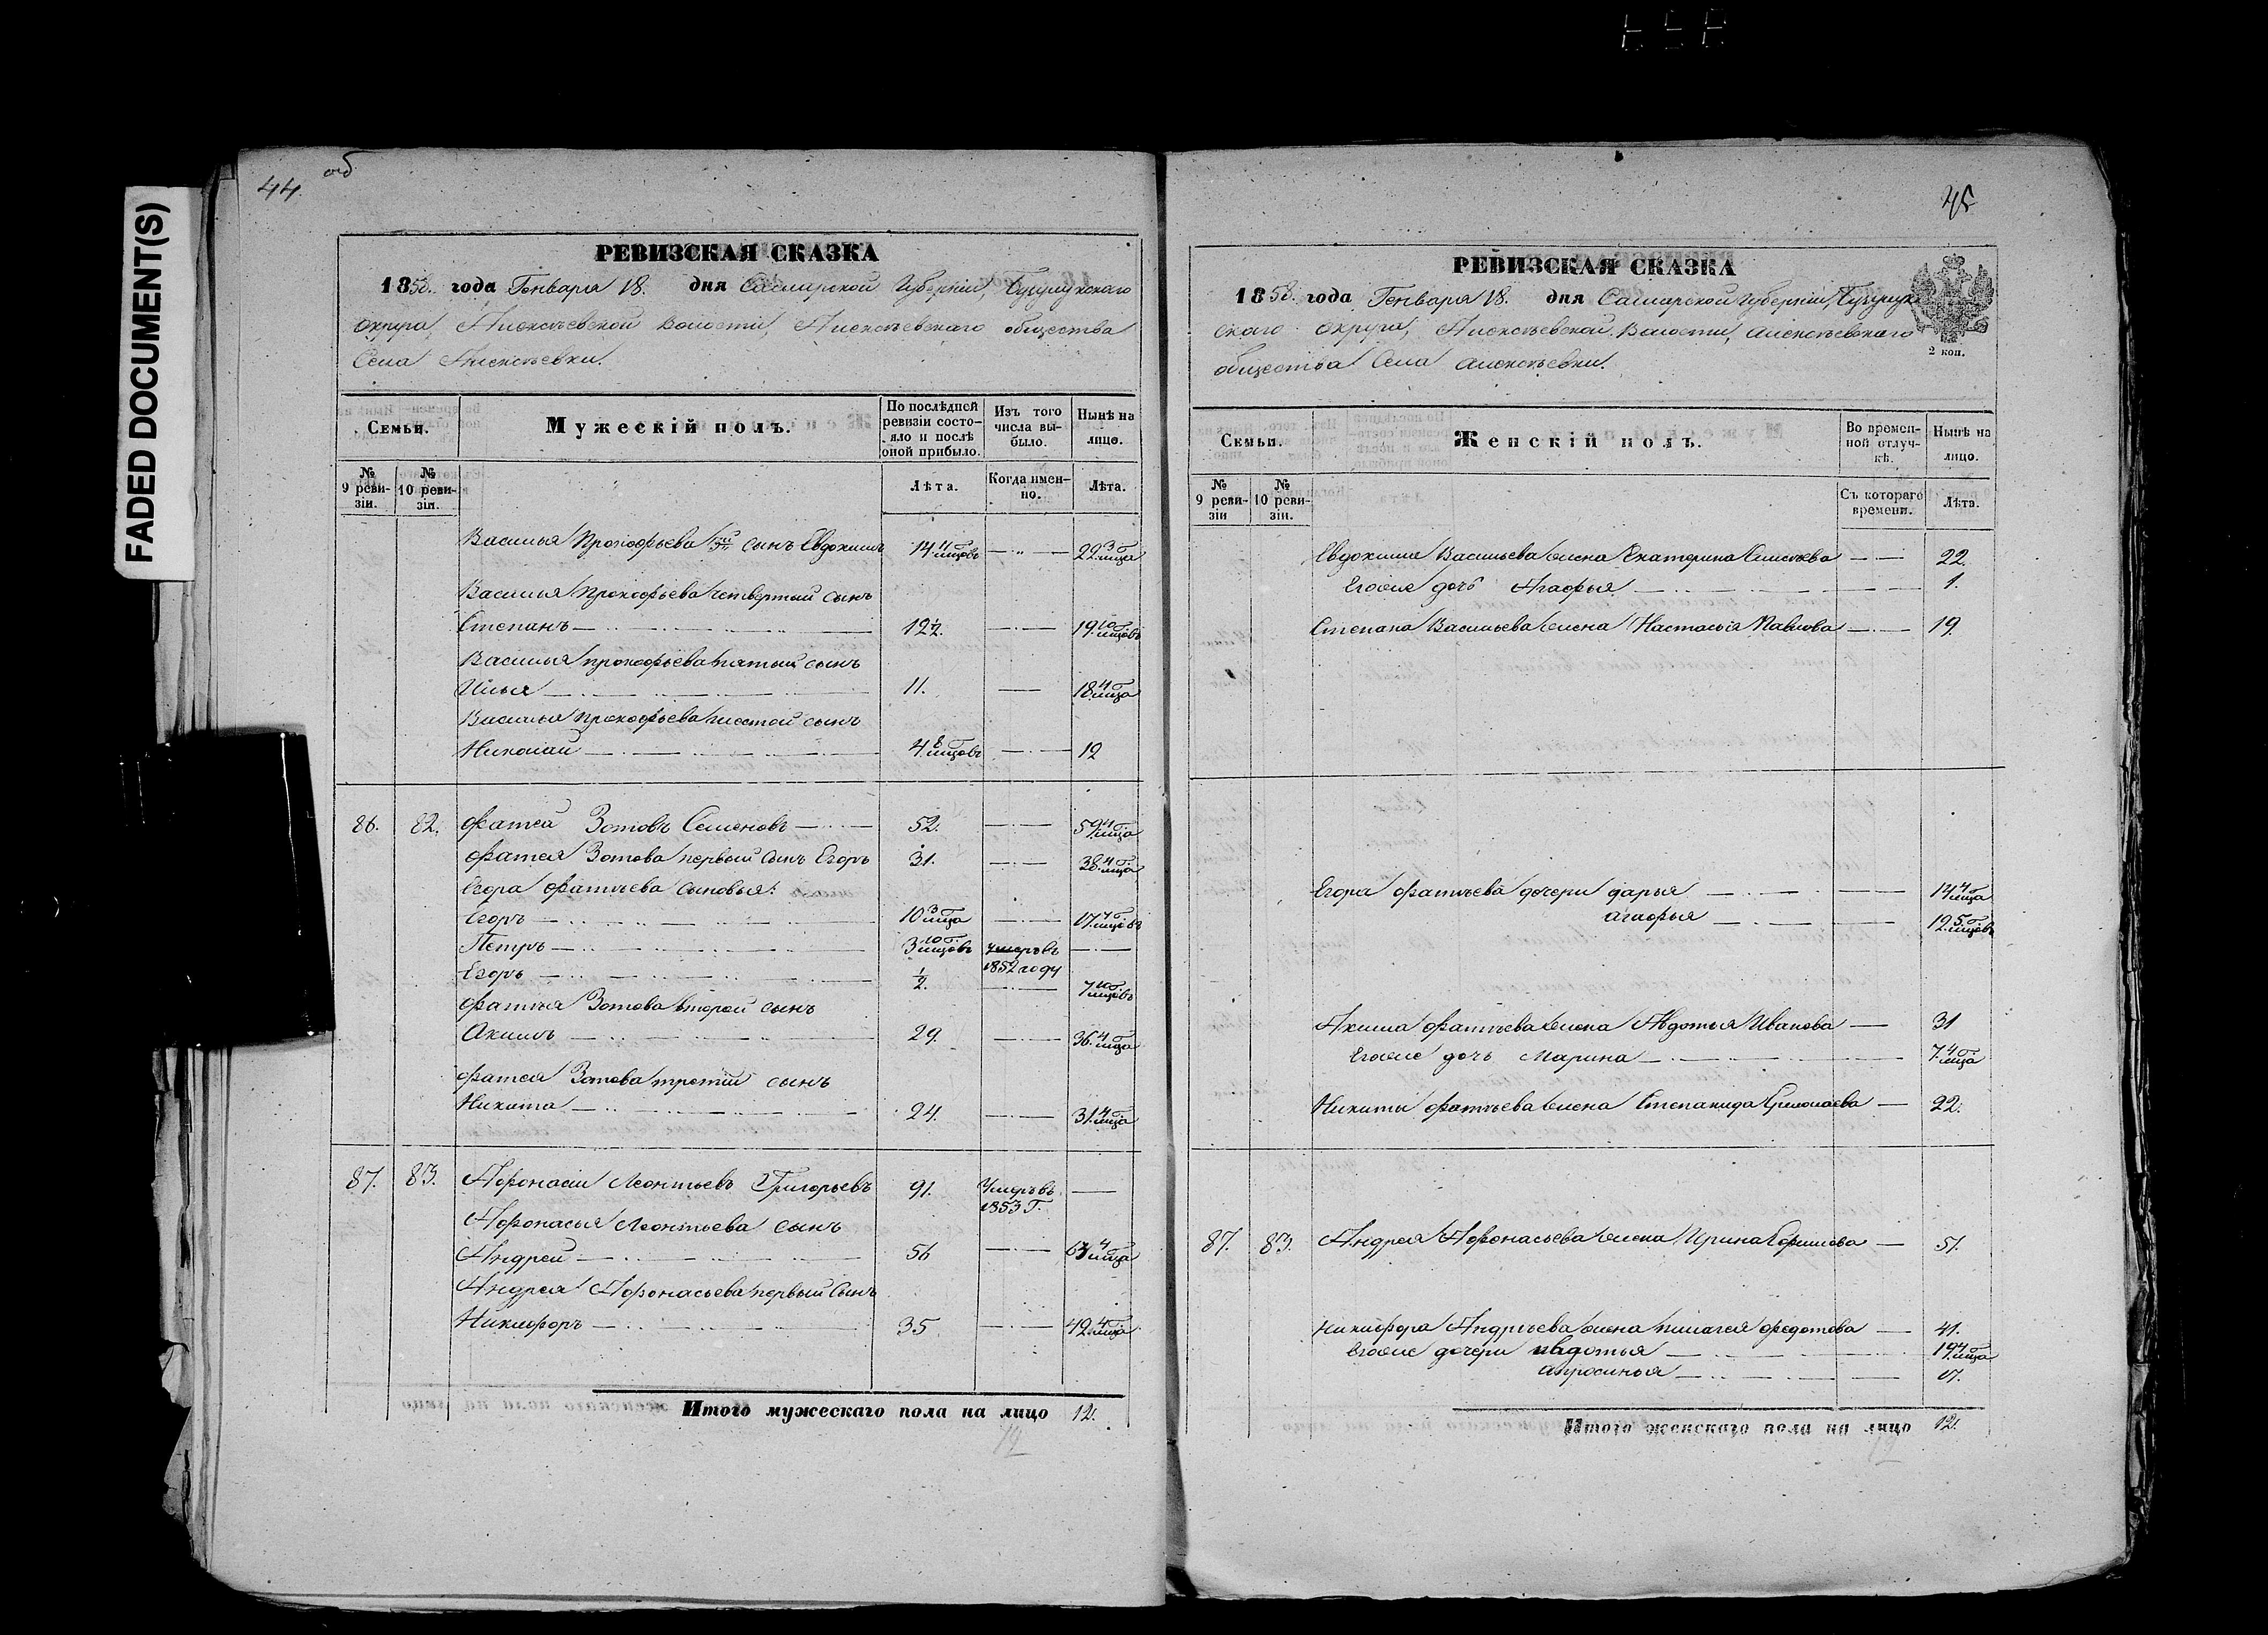 FADED DOCUMENT(S)
44. об
РЕВИЗСКАЯ СКАЗКА
1858. года Генваря 18. дня Самарской Губерніи, Бугурускаго
округа, Алексѣевской Волости, Алексѣевскаго общества
Села Алексѣевки.
Семьи.
Мужескій полъ.
По послѣдней ревизіи состояло и послѣ оной прибыло.
Изъ того числа выбыло.
Нынѣ на лице.
№ 9 ревизіи.
№ 10 ревизіи.
Лѣта.
Когда именно.
Лѣта.
Василья Прокофьева 3й сынъ Евдокимъ 14 11/мцовъ — 22 3/мца
Василья Прокофьева четвертый сынъ
Степанъ — 12 1/2. — 19 10/мцовъ
Василья прокофьева пятый сынъ
Илья — 11. — 18 4/мца
Василья Прокофьева шестой сынъ
Николай — 4 8/мцовъ — 12
86. 82. Фатей Зотовъ Семеновъ — 52. — 59 4/мца
Фатея Зотова первый сынъ Егоръ 31. — 38 4/мца
Егора Фатѣева сыновья:
Егоръ — 10 3/мца — 17 4/мцовъ
Петръ — 3 10/мцовъ умеръ въ 1852 году —
Егоръ — 1/2. — 7 10/мцовъ
Фатѣя Зотова второй сынъ
Акимъ — 29. — 36 4/мца
Фатея Зотова третій сынъ
Никита — 24. — 31 4/мца
87. 83. Афонасій Леонтьевъ Григорьевъ 91. Умеръ въ 1853 Г. —
Афонасья Леонтьева сынъ
Андрей — 56 — 63 4/мца
Андрея Афонасьева первый сынъ
Никифоръ — 35 — 42 4/мца
Итого мужескаго пола на лицо 12.
12
45
РЕВИЗСКАЯ СКАЗКА
1858. года Генваря 18. дня Самарской Губерніи, Бугурус
скаго округа, Алексѣевской Волости, алексѣевскаго
общества Села алексѣевки.
2 коп.
Семьи.
Женскій полъ.
Во временной отлучкѣ.
Нынѣ на лицо.
№ 9 ревизіи
№ 10 ревизіи.
Съ котораго времени.
Лѣта.
Евдокима Васильева жена Екатерина — 22.
Егоже дочь Агафья — 1.
Степана Васильева жена Настасья Павлова — 19.
Егора Фатѣева дочери дарья — 14 4/мца
агафья — 12 5/мцовъ
Акима Фатѣева жена Авдотья Иванова — 31
Егоже дочь Марина — 7 4/мца
Никиты Фатѣева жена Степанида — 22.
87. 83. Андрея Афонасьева жена Ирина Ефимова — 51.
Никифора Андрѣева жена пилагея федотова — 41.
Егоже дочери авдотья — 19 4/мца
апросинья — 17.
Итого женскаго пола на лицо 12.
12